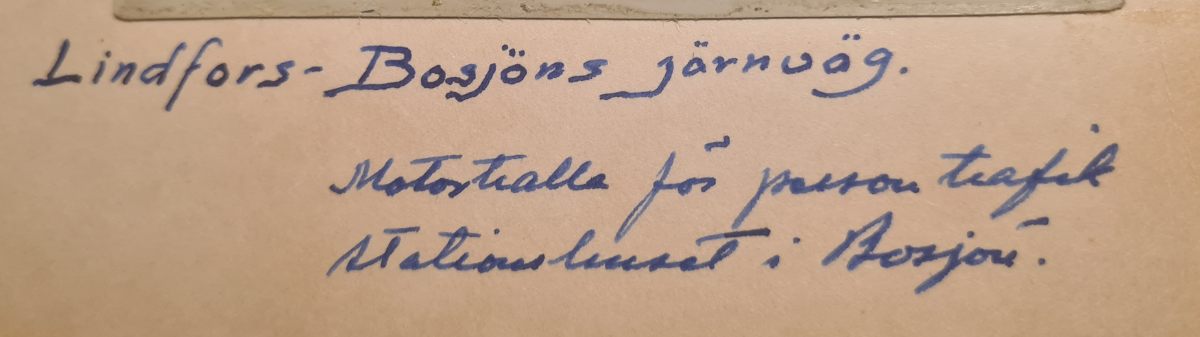 Lindfors- Bosjöns järnväg.
Motortralla för person trafik
stationshuset i Bosjön.